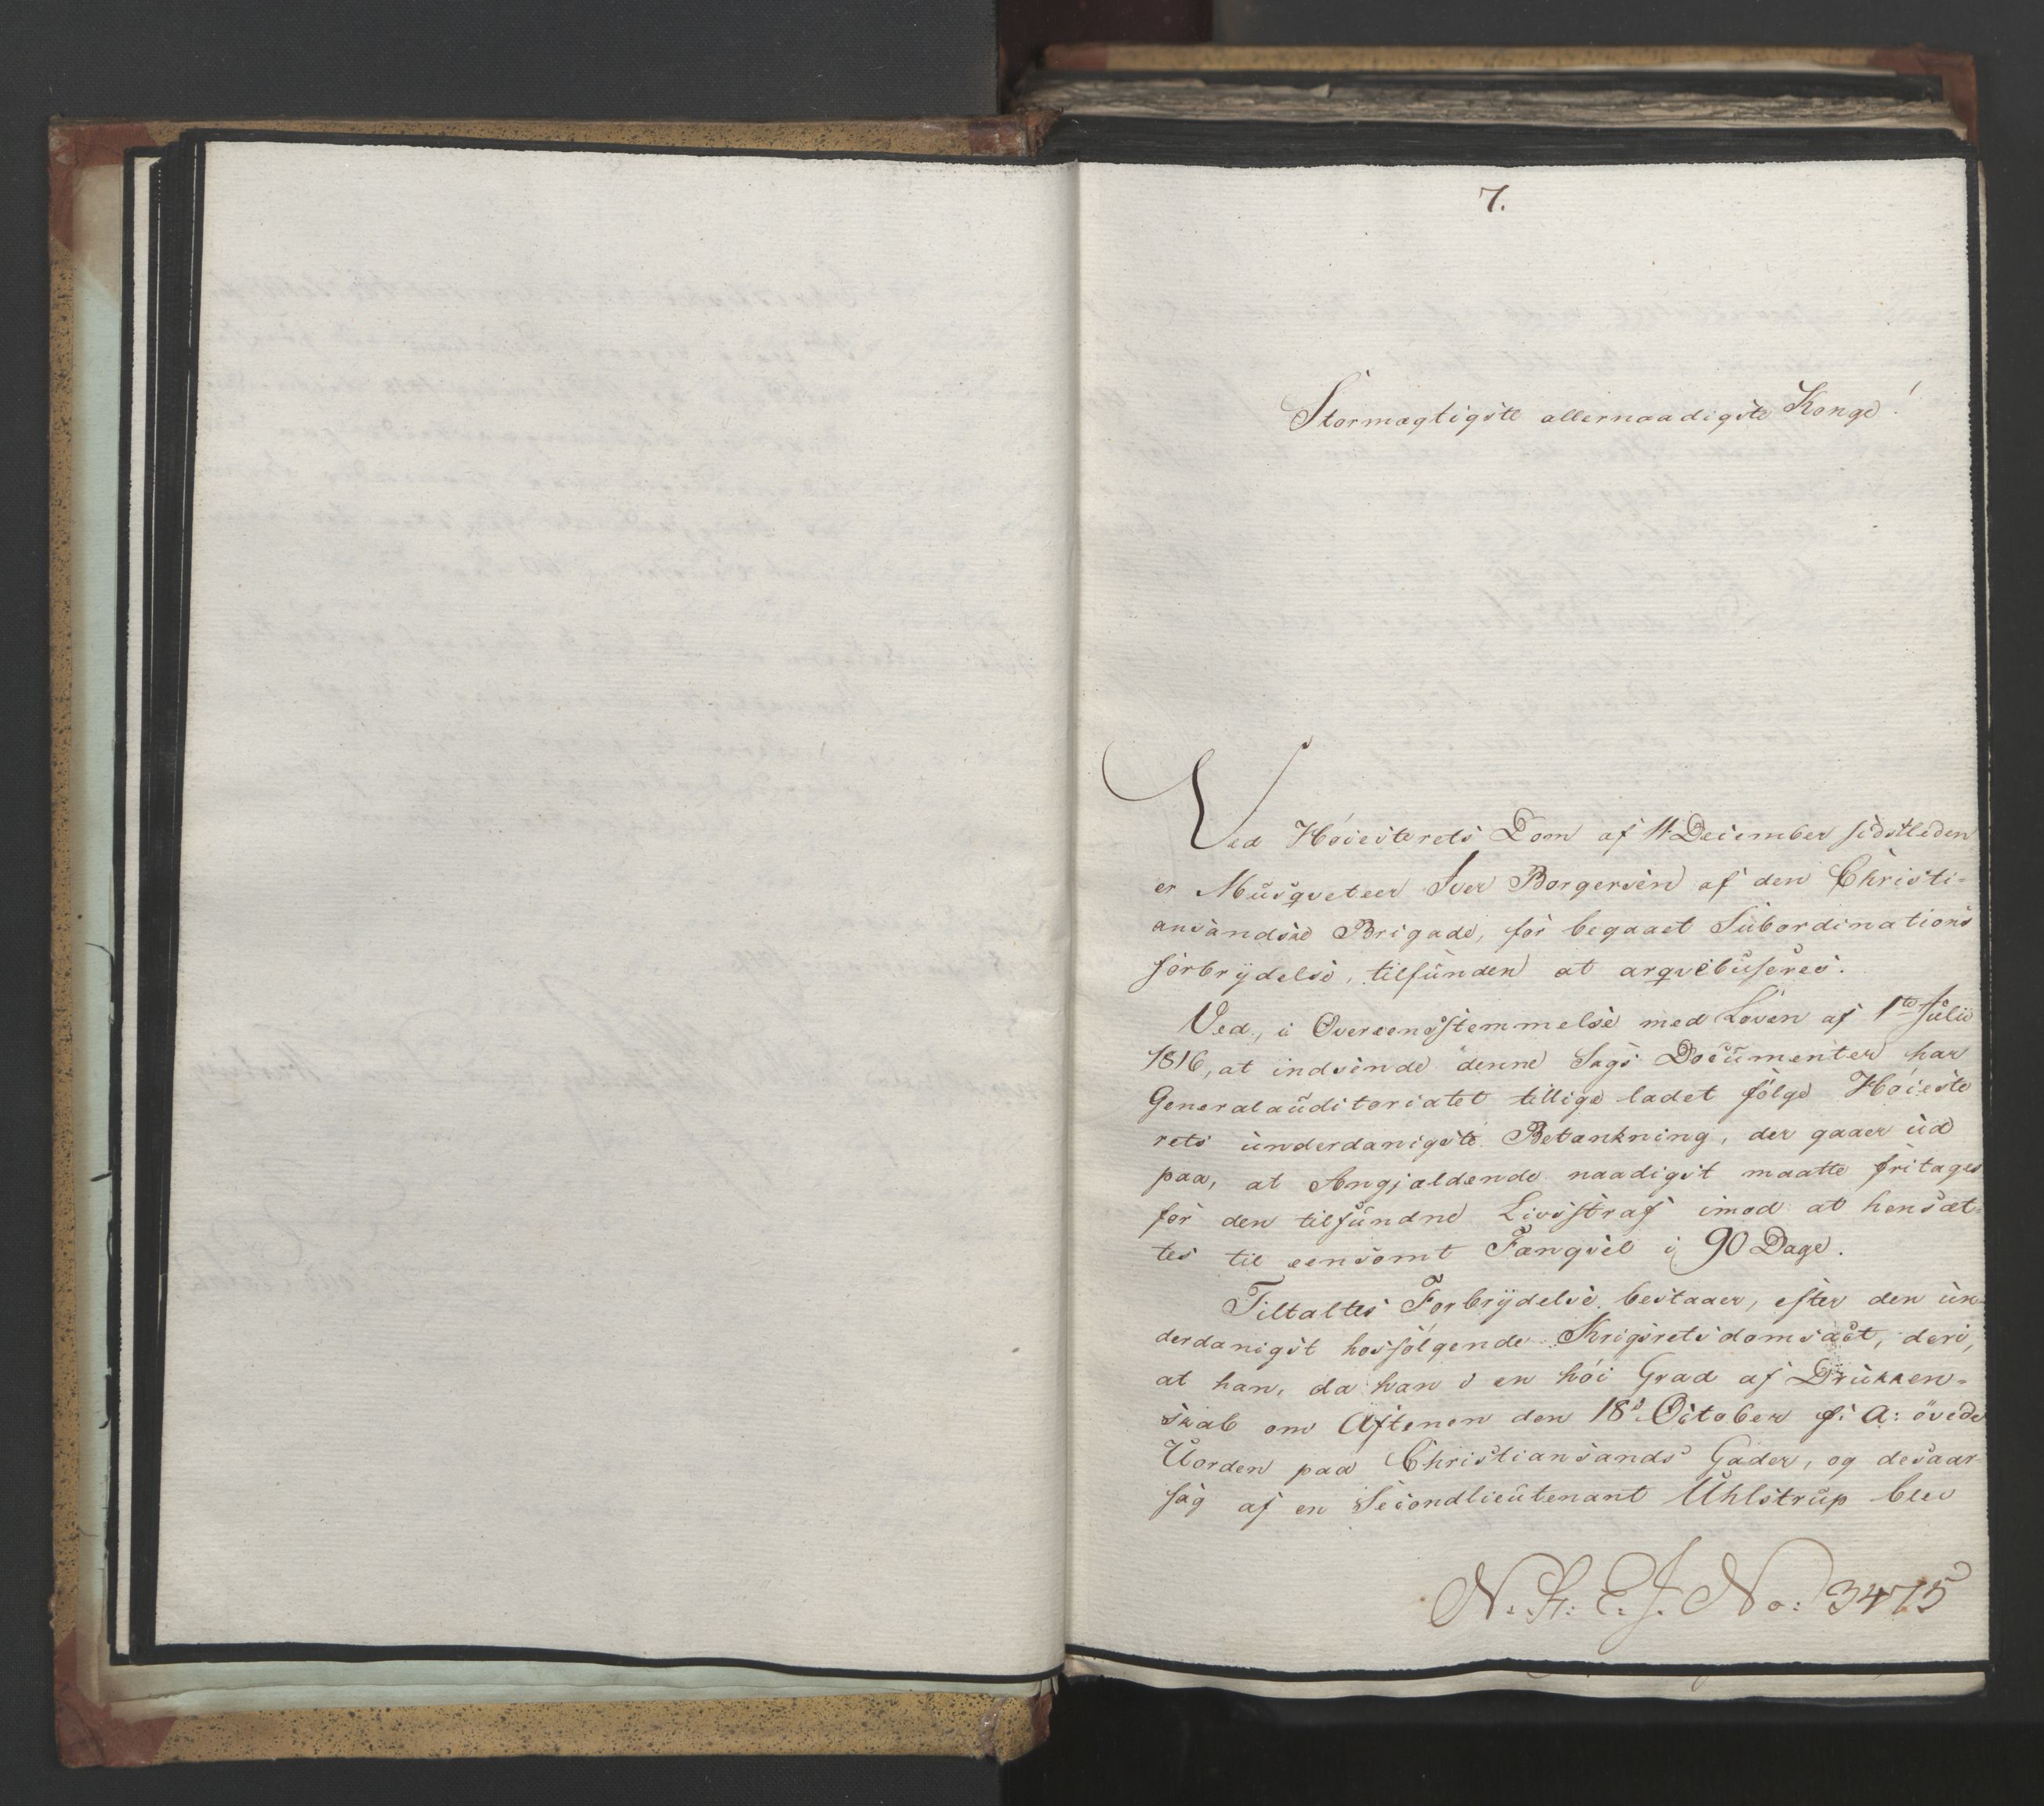 7.
Stormægtigste allernaadigste Konge!
Ved Höiesterets Dom af 4 December sidstleden
er Musqveteer Iver Borgersen af den Christi-
ansandske Brigade, for begaaet Subordinations
forbrydelse, tilfunden at arqvebuseres.
Ved, i Overeensstemmelse med Loven af 1te Julii
1816, at indsende denne Sags Documenter har
Generalauditoriatet tillige ladet fölge Höieste
rets underdanigste Betænkning, der gaaer ud
paa, at Angjældende naadigst maatte fritages
for den tilfundne Livsstraf imod at hensæt-
tes til eensomt Fængsel i 90 Dage.
Tiltaltes Forbrydelse bestaaer, efter den un-
derdanigst hosfölgende Krigsretsdomsact, deri,
at han, da han i en höi Grad af Drukken-
skab om Aftenen den 18d October f: A: övede
Uorden paa Christiansands Gader, og desaar-
sag af en Secondlieutenant Uhlstrup blev
N. St: E. J. No: 3475